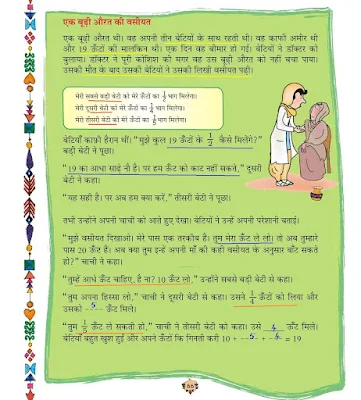 एक बूढ़ी औरत की वसीयत
एक बूढ़ी औरत थी। वह अपनी तीन बेटियों के साथ रहती थी। वह काफ़ी अमीर थी
और 19 ऊँटों की मालकिन थी। एक दिन वह बीमार हो गई। बेटियों ने डॉक्टर को
बुलाया। डॉक्टर ने पूरी कोशिश की मगर वह उस बूढ़ी औरत को नहीं बचा पाया।
उसकी मौत के बाद उसकी बेटियों ने उसकी लिखी वसीयत पढ़ी।
मेरी सबसे बड़ी बेटी को मेरे ऊँटों का 1/2 भाग मिलेगा।
मेरी दूसरी बेटी को मेरे ऊँटों का 1/4 भाग मिलेगा।
मेरी तीसरी बेटी को मेरे ऊँटों का 1/5 भाग मिलेगा।
बेटियाँ काफ़ी हैरान थीं। “मुझे कुल 19 ऊँटों के 1/2 कैसे मिलेंगे?”
बड़ी बेटी ने पूछा।
“19 का आधा साढ़े नौ है। पर हम ऊँट को काट नहीं सकते,” दूसरी
बेटी ने कहा।
“यह सही है। पर अब हम क्या करें,” तीसरी बेटी ने पूछा।
तभी उन्होंने अपनी चाची को आते हुए देखा। बेटियों ने उन्हें अपनी परेशानी बताई।
“मुझे वसीयत दिखाओ। मेरे पास एक तरकीब है। तुम मेरा ऊँट ले लो। तो अब तुम्हारे
पास 20 ऊँट हैं। अब क्या तुम इन्हें अपनी माँ की कही वसीयत के अनुसार बाँट सकते
हो?” चाची ने कहा।
“तुम्हें आधे ऊँट चाहिए, है ना? 10 ऊँट लो,” उन्होंने सबसे बड़ी बेटी से कहा।
“तुम अपना हिस्सा लो,” चाची ने दूसरी बेटी से कहा। उसने 1/4 ऊँटों को लिया और
उसको 5 ऊँट मिले।
“तुम 1/5 ऊँट ले सकती हो,” चाची ने तीसरी बेटी को कहा। उसे 4 ऊँट मिले।
बेटियाँ बहुत खुश हुईं और अपने ऊँटों कि गिनती करी 10 + 5 + = 19
66